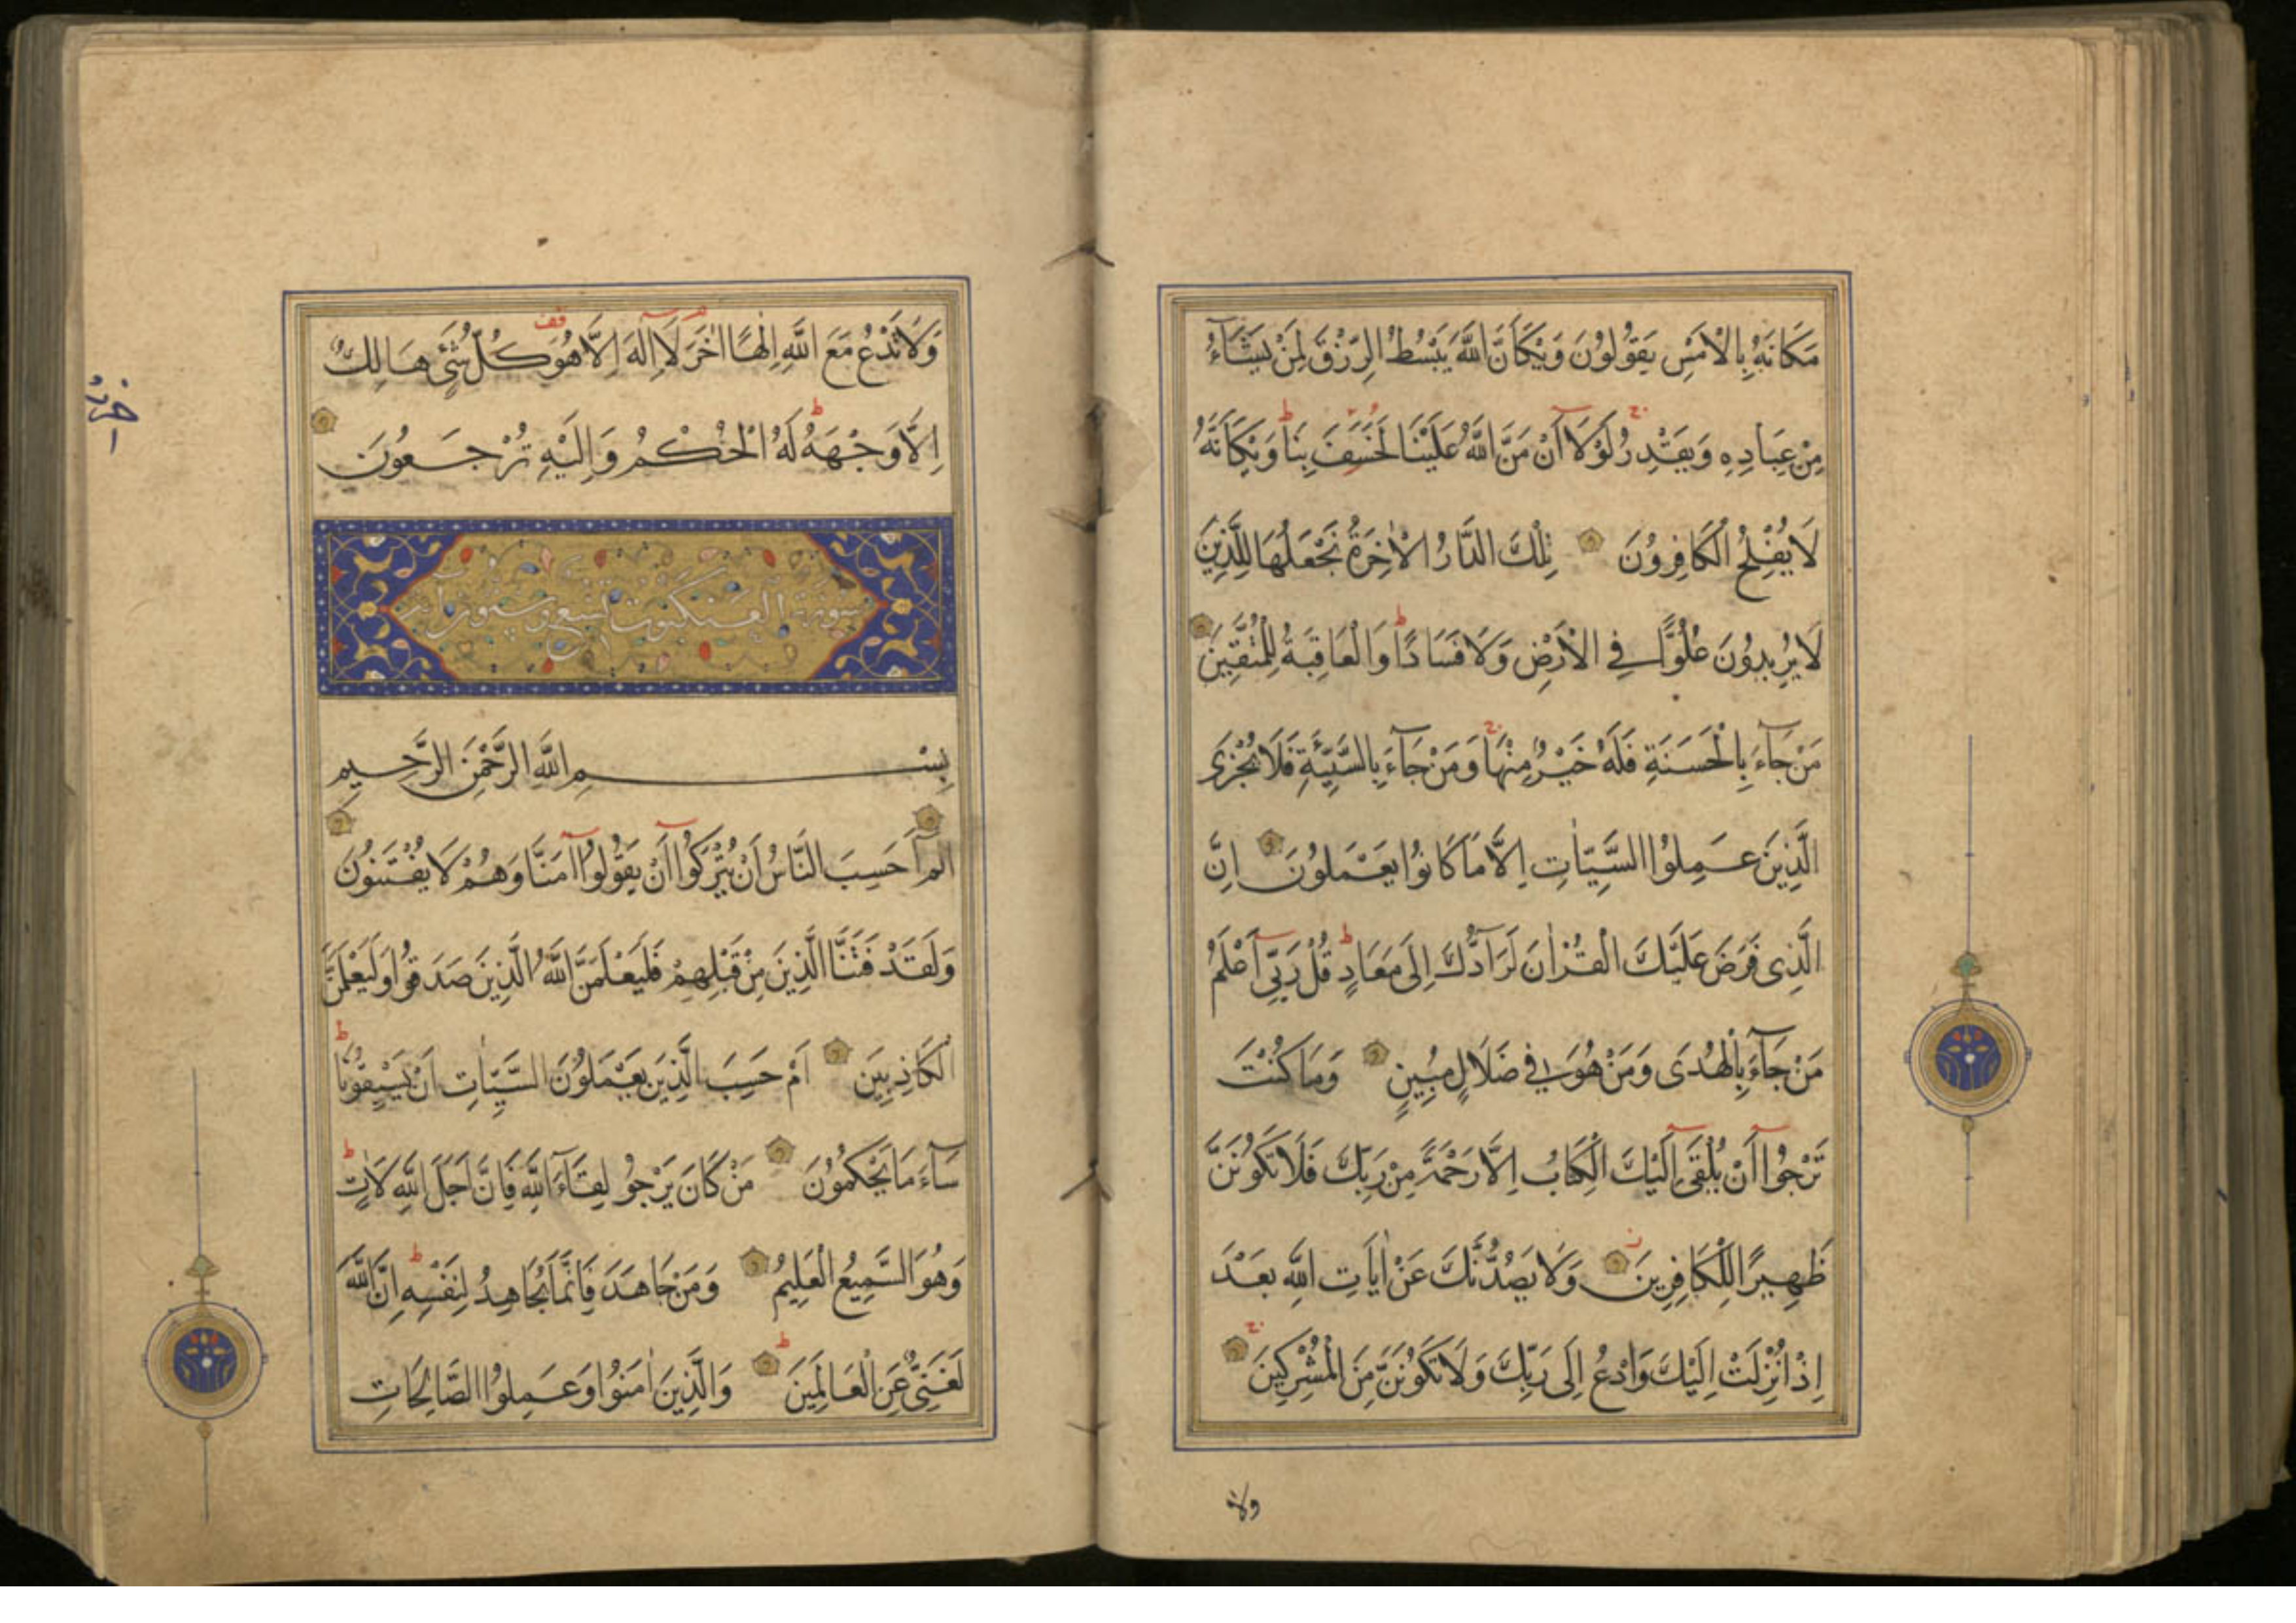 مَكَانَهُ بِالْاَمْسِ يَقُولُونَ وَيْكَاَنَّ اللّٰهَ يَبْسُطُ الرِّزْقَ لِمَنْ يَشَآءُ
مِنْ عِبَادِهِ وَيَقْدِرُ لَوْلَآ اَنْ مَنَّ اللّٰهُ عَلَيْنَا لَخَسَفَ بِنَا وَيْكَاَنَّهُ
لَا يُفْلِحُ الْكَافِرُونَ تِلْكَ الدَّارُ الْاٰخِرَةُ نَجْعَلُهَا لِلَّذِينَ
لَا يُرِيدُونَ عُلُوًّا فِي الْاَرْضِ وَلَا فَسَادًا وَالْعَاقِبَةُ لِلْمُتَّقِينَ
مَنْ جَآءَ بِالْحَسَنَةِ فَلَهُ خَيْرٌ مِنْهَا وَمَنْ جَآءَ بِالسَّيِّئَةِ فَلَا يُجْزَى
الَّذِينَ عَمِلُوا السَّيِّاٰتِ اِلَّا مَا كَانُوا يَعْمَلُونَ اِنَّ
الَّذِى فَرَضَ عَلَيْكَ الْقُرْاٰنَ لَرَآدُّكَ اِلَى مَعَادٍ قُلْ رَبِّىٓ اَعْلَمُ
مَنْ جَآءَ بِالْهُدَى وَمَنْ هُوَ فِي ضَلَالٍ مُبِينٍ وَمَا كُنْتَ
تَرْجُوآ اَنْ يُلْقَىٓ اِلَيْكَ الْكِتَابُ اِلَّا رَحْمَةً مِنْ رَبِّكَ فَلَا تَكُونَنَّ
ظَهِيرًا لِلْكَافِرِينَ وَلَا يَصُدُّنَّكَ عَنْ اٰيَاتِ اللّٰهِ بَعْدَ
اِذْ اُنْزِلَتْ اِلَيْكَ وَادْعُ اِلَى رَبِّكَ وَلَا تَكُونَنَّ مِنَ الْمُشْرِكِينَ
ولا
وَلَا تَدْعُ مَعَ اللّٰهِ اِلٰهًا اٰخَرَ لَآ اِلٰهَ اِلَّا هُوَ كُلُّ شَىْءٍ هَالِكٌ
اِلَّا وَجْهَهُ لَهُ الْحُكْمُ وَاِلَيْهِ تُرْجَعُونَ
سورة العنكبوت تسع وستون آية
بِسْمِ اللّٰهِ الرَّحْمٰنِ الرَّحِيمِ
الٓمٓ اَحَسِبَ النَّاسُ اَنْ يُتْرَكُوآ اَنْ يَقُولُوآ اٰمَنَّا وَهُمْ لَا يُفْتَنُونَ
وَلَقَدْ فَتَنَّا الَّذِينَ مِنْ قَبْلِهِمْ فَلَيَعْلَمَنَّ اللّٰهُ الَّذِينَ صَدَقُوا وَلَيَعْلَمَنَّ
الْكَاذِبِينَ اَمْ حَسِبَ الَّذِينَ يَعْمَلُونَ السَّيِّاٰتِ اَنْ يَسْبِقُونَا
سَآءَ مَا يَحْكُمُونَ مَنْ كَانَ يَرْجُو لِقَآءَ اللّٰهِ فَاِنَّ اَجَلَ اللّٰهِ لَاٰتٍ
وَهُوَ السَّمِيعُ الْعَلِيمُ وَمَنْ جَاهَدَ فَاِنَّمَا يُجَاهِدُ لِنَفْسِهِ اِنَّ اللّٰهَ
لَغَنِىٌّ عَنِ الْعَالَمِينَ وَالَّذِينَ اٰمَنُوا وَعَمِلُوا الصَّالِحَاتِ